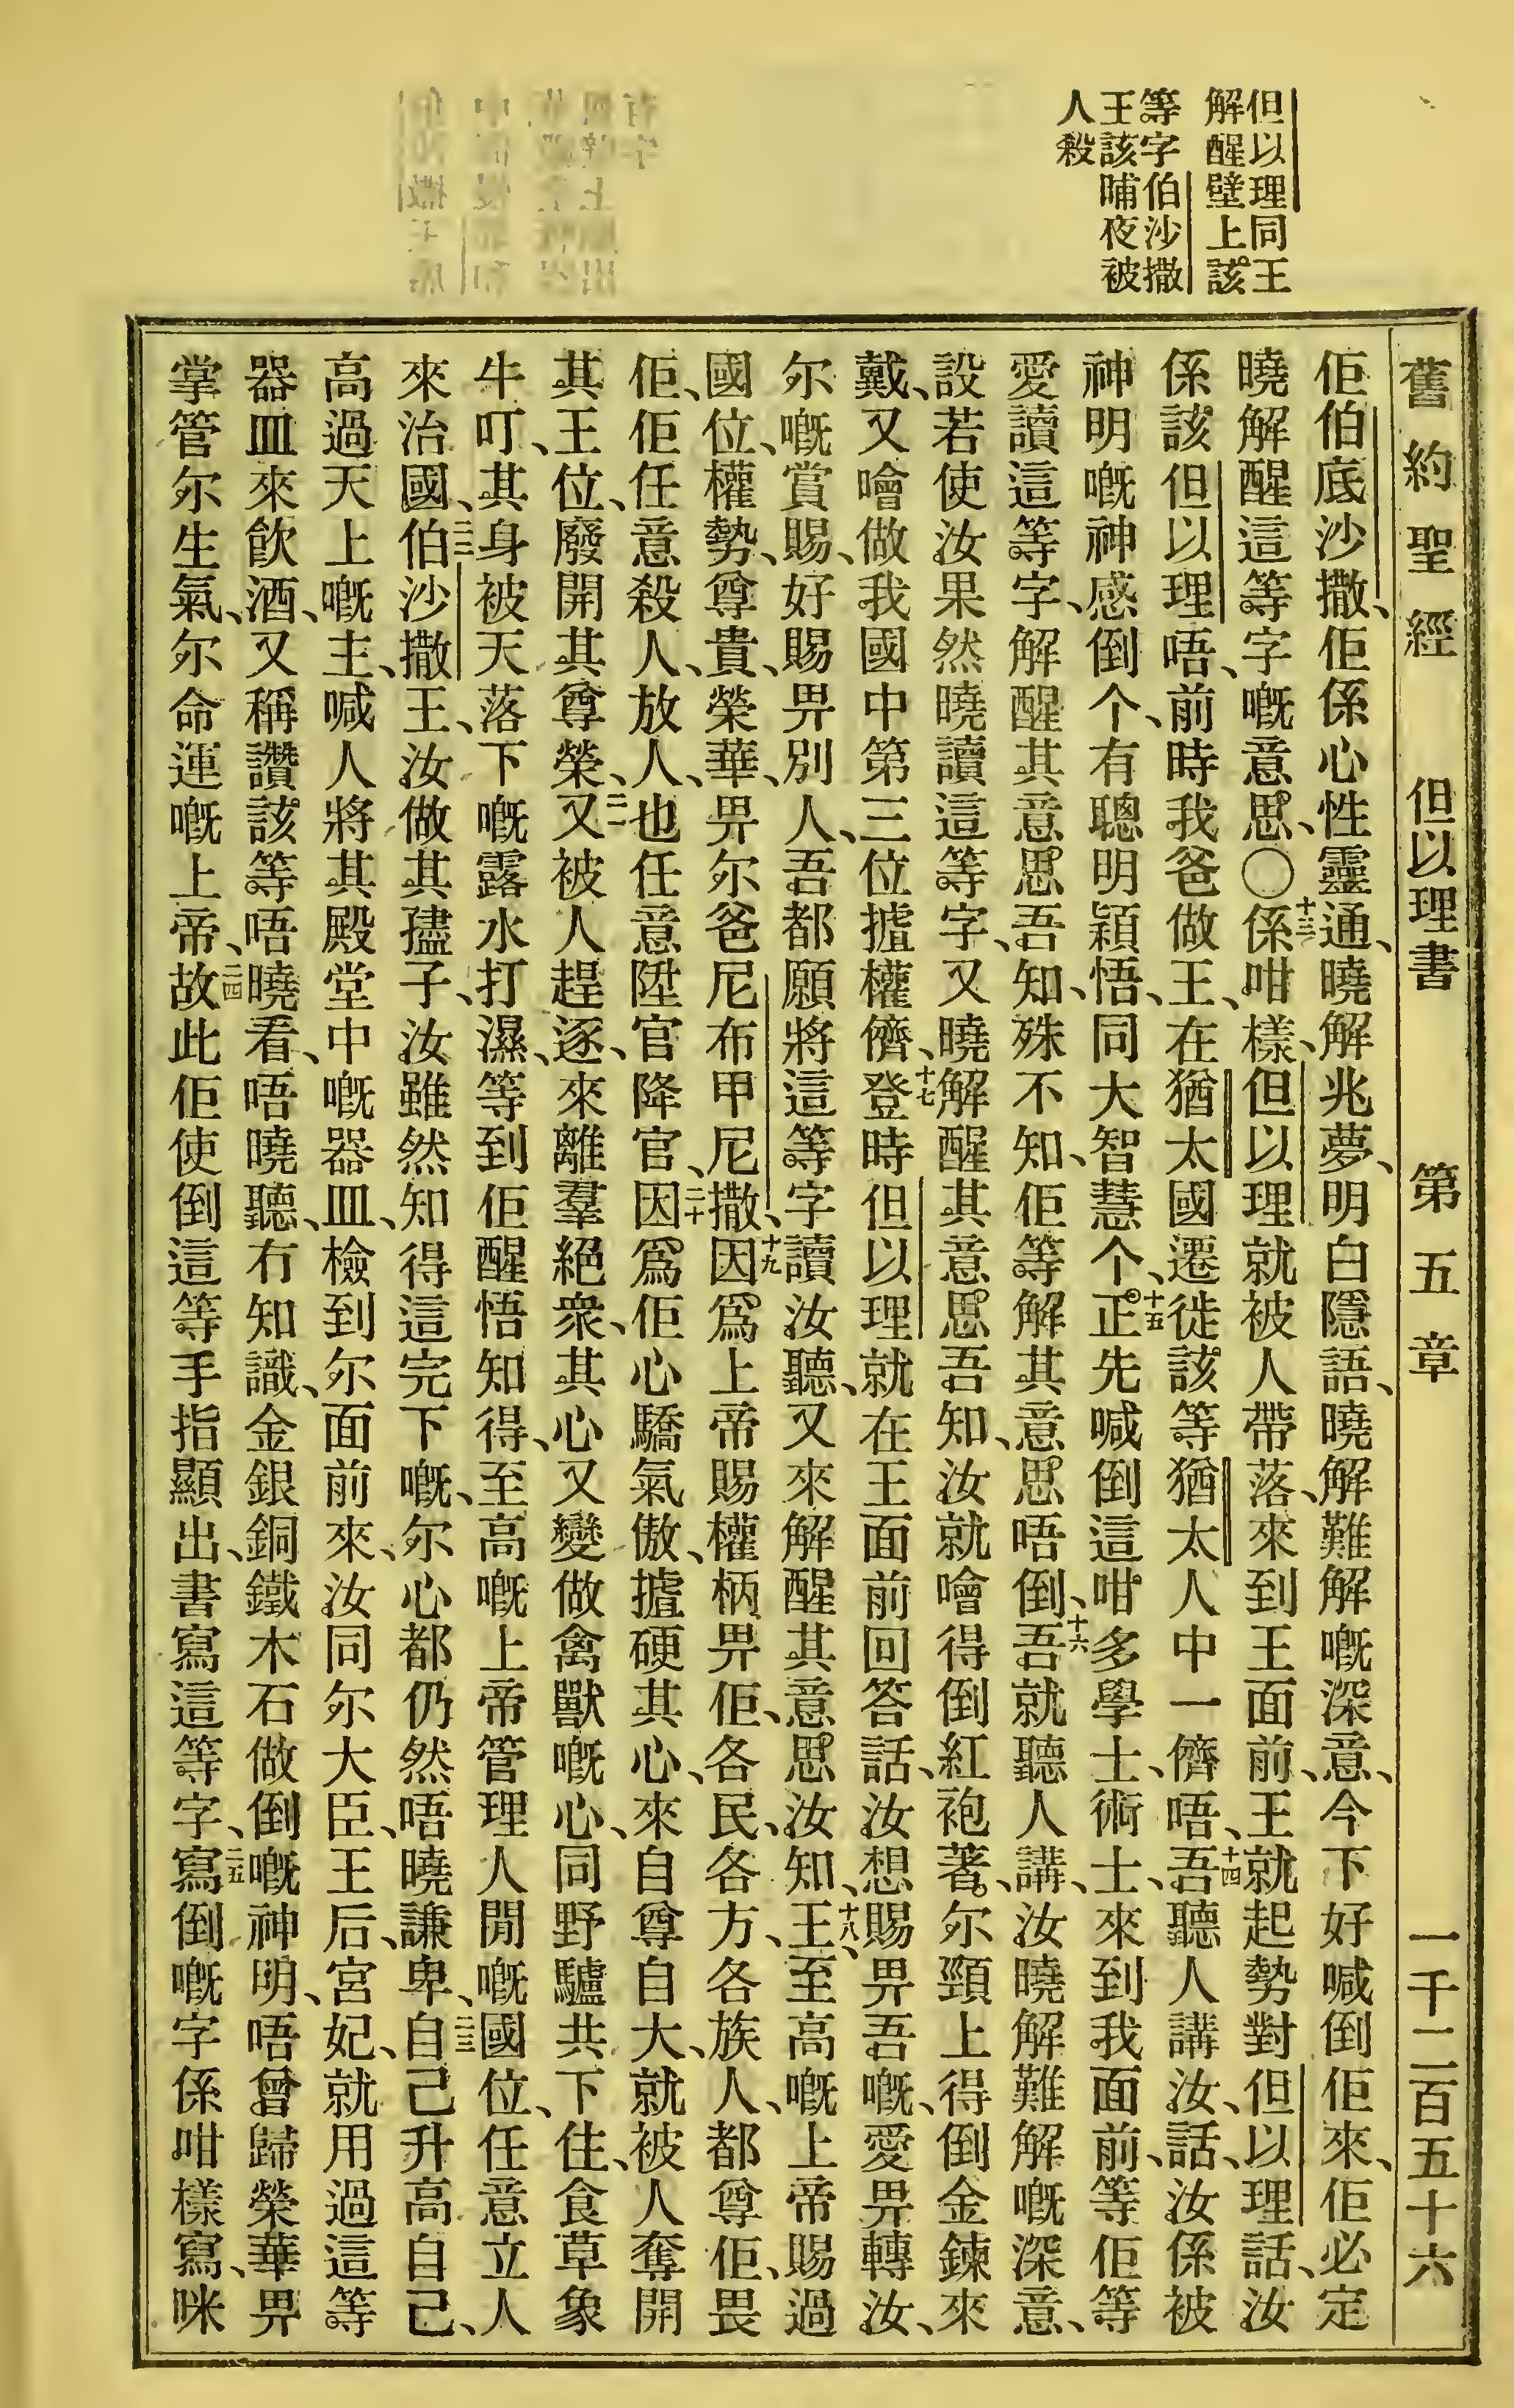 但以理同王
解醒壁上該
等字伯沙撒
王該晡夜被
人殺
舊約聖經 但以理書 第五章 一千二百五十六
佢伯底沙撒、佢係心性靈通、曉解兆夢、明白隱語、曉解難解嘅深意、今下好喊倒佢來、佢必定
曉解醒這等字嘅意思、〇十三係咁樣、但以理就被人帶落、來到王面前、王就起勢對但以理話、汝
係該但以理唔、前時我爸做王、在猶太國遷徙該等猶太人中一儕唔、十四吾聽人講汝、話汝係被
神明嘅神感倒个、有聰明穎悟、同大智慧个、十五正先喊倒這咁多學士、術士、來到我面前、等佢等
愛讀這等字、解醒其意思、吾知、殊不知、佢等解其意思唔倒、十六吾就聽人講、汝曉解難解嘅深意、
設若使汝果然曉讀這等字、又曉解醒其意思吾知、汝就噲得倒紅袍著、尔頸上得倒金鍊來
戴、又噲做我國中第三位㨿權儕、十七登時但以理就在王面前回答話、汝想賜畀吾嘅、愛畀轉汝、
尔嘅賞賜、好賜畀別人、吾都願將這等字讀汝聽、又來解醒其意思汝知、十八王、至高嘅上帝賜過
國位、權勢、尊貴、榮華、畀尔爸尼布甲尼撒、十九因爲上帝賜權柄畀佢、各民、各方、各族人、都尊佢、畏
佢、佢任意殺人、放人、也任意陞官降官、二十因爲佢心驕氣傲、㨿硬其心、來自尊自大、就被人奪開
其王位、廢開其尊榮、二一又被人趕逐、來離羣絕衆、其心又變做禽獸嘅心、同野驢共下住、食草象
牛叮、其身被天落下嘅露水打濕、等到佢醒悟知得、至高嘅上帝管理人閒嘅國位、任意立人
來治國、二二伯沙撒王、汝做其孻子、汝雖然知得這完下嘅、尔心都仍然唔曉謙卑、二三自己升高自己、
高過天上嘅主、喊人將其殿堂中嘅器皿、檢到尔面前來、汝同尔大臣、王后、宮妃、就用過這等
器皿來飲酒、又稱讚該等唔曉看、唔曉聽、冇知識、金銀銅鐵木石做倒嘅神明、唔曾歸榮華畀
掌管尔生氣、尔命運嘅上帝、二四故此佢使倒這等手指顯出、書寫這等字、二五寫倒嘅字係咁樣寫、咪